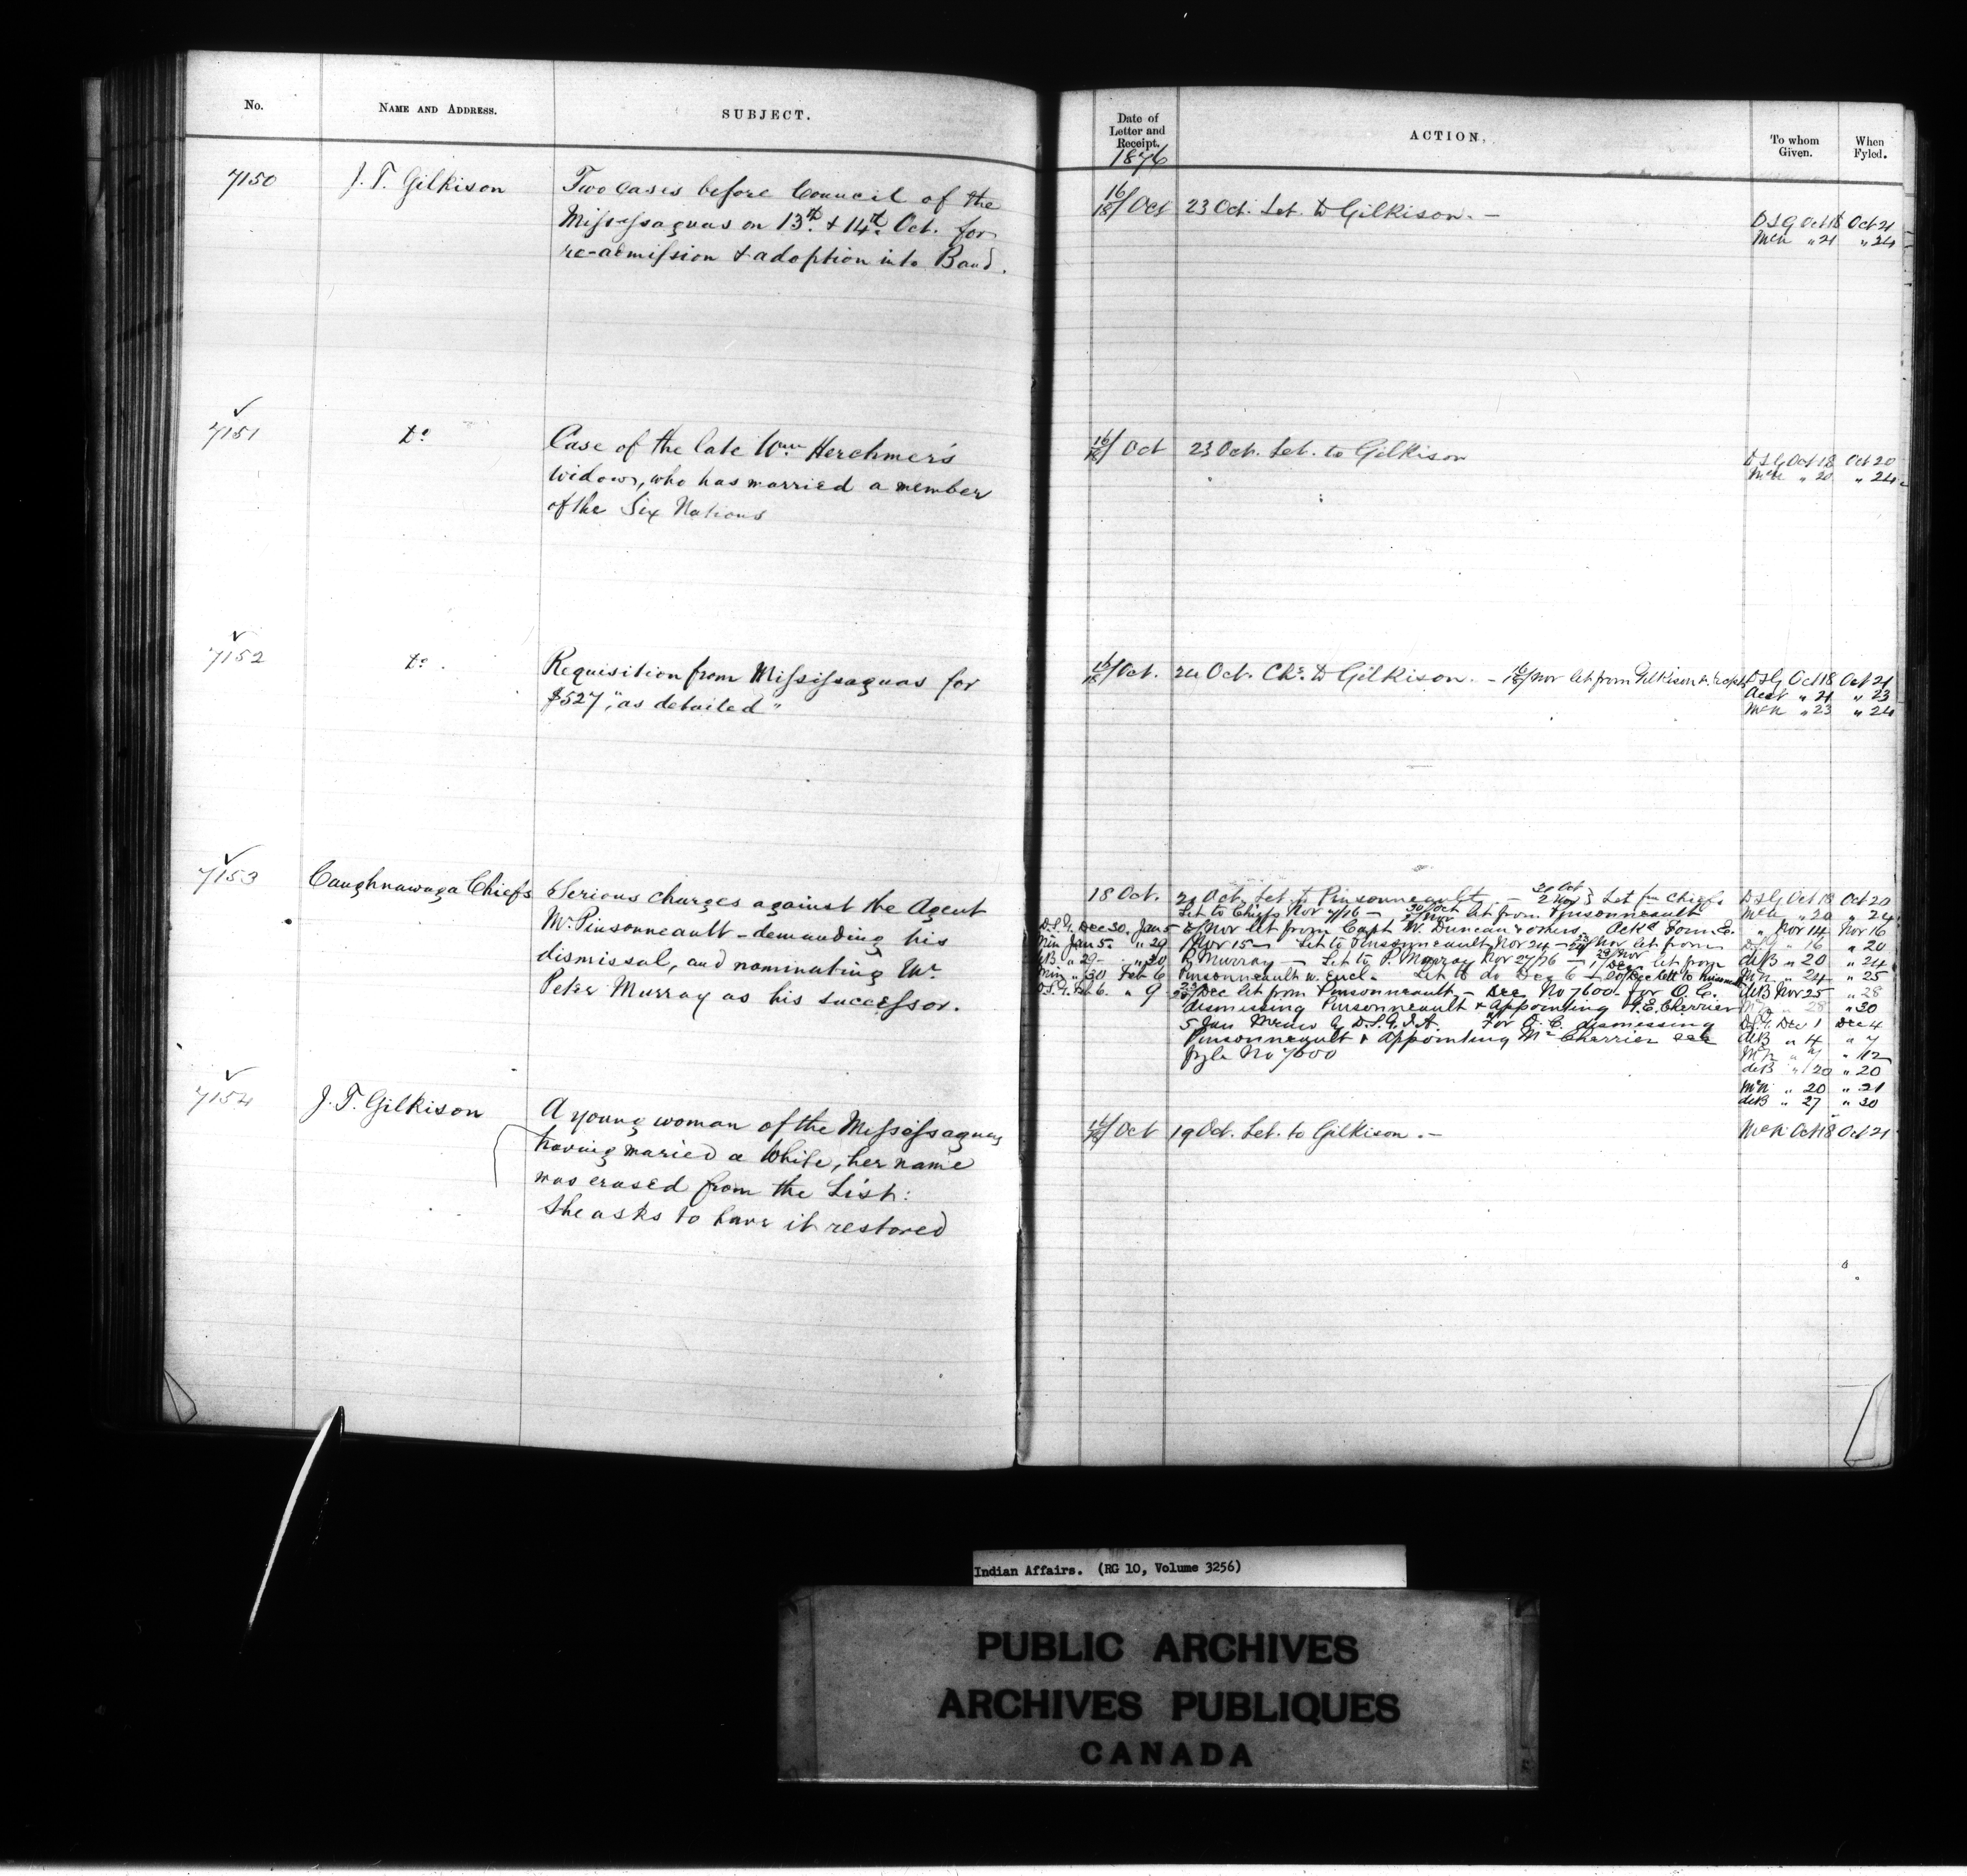 No.
NAME AND ADDRESS.
SUBJECT.
Date of
Letter and
Receipt.
1876
ACTION.
To whom
Given.
When
Fyled.
7150
J. T. Gilkison
Two cases before Council of the
Mississaguas on 13th & 14th Oct. for
re-admission & adoption into Band.
16/18 Oct
23 Oct. Let. to Gilkison. —
DSG Oct 18 Oct 21
McN " 21 " 24
7151
Do
Case of the late Wm Herchmer's
widow, who has married a member
of the Six Nations
16/18 Oct
23 Oct. Let. to Gilkison
DSG Oct 18 Oct 20
McN " 20 " 24
7152
Do.
Requisition from Mississaguas for
$527, "as detailed"
16/18 Oct.
24 Oct. Chs. to Gilkison. — 16/18 Nov let from Gilkison
DSG Oct 18 Oct 21
Acct " 21 " 23
McN " 23 " 24
7153
Caughnawaga Chiefs
Serious charges against the Agent
Mr Pinsonneault - demanding his
dismissal, and nominating Mr
Peter Murray as his successor.
18 Oct.
Oct. Let. to Pinsonneault. — Let fm Chiefs
Let to Chiefs Nov 7/76 — let from Pinsonneault
Nov let from Capt W. Duncan & others.
Nov 15 — Let to Pinsonneault Nov 24 — Nov let from
P. Murray — Let to P. Murray Nov 27/76 — 1/Dec let from
Pinsonneault w. Encl. Let to do Dec 6
Dec let from Pinsonneault — See No 7600 for O.C.
dismissing Pinsonneault & appointing G. E. Cherrier
5 Jan Memo to D.S.G.I.A. For O.C. dismissing
Pinsonneault & appointing Mr Cherrier see
fyle No 7600
D.S.G. Dec 30. Jan 5
Min Jan 5. " 29
deB " 29 " 30
Min " 30 Feb 6
D.S.G. Feb 6. " 9
DSG Oct 18 Oct 20
McN " 20 " 24
" Nov 14 Nov 16
DSG " 16 " 20
deB " 20 " 24
McN " 24 " 25
deB Nov 25 " 28
McN " 28 " 30
D.S.G. Dec 1 Dec 4
deB " 4 " 7
McN " 7 " 12
deB " 20 " 20
McN " 20 " 21
deB " 27 " 30
7154
J. T. Gilkison
A young woman of the Mississaguas
having maried a White, her name
was erased from the List:
She asks to have it restored
Oct
19 Oct. Let. to Gilkison. —
McN Oct 18 Oct 21
Indian Affairs. (RG 10, Volume 3256)
PUBLIC ARCHIVES
ARCHIVES PUBLIQUES
CANADA